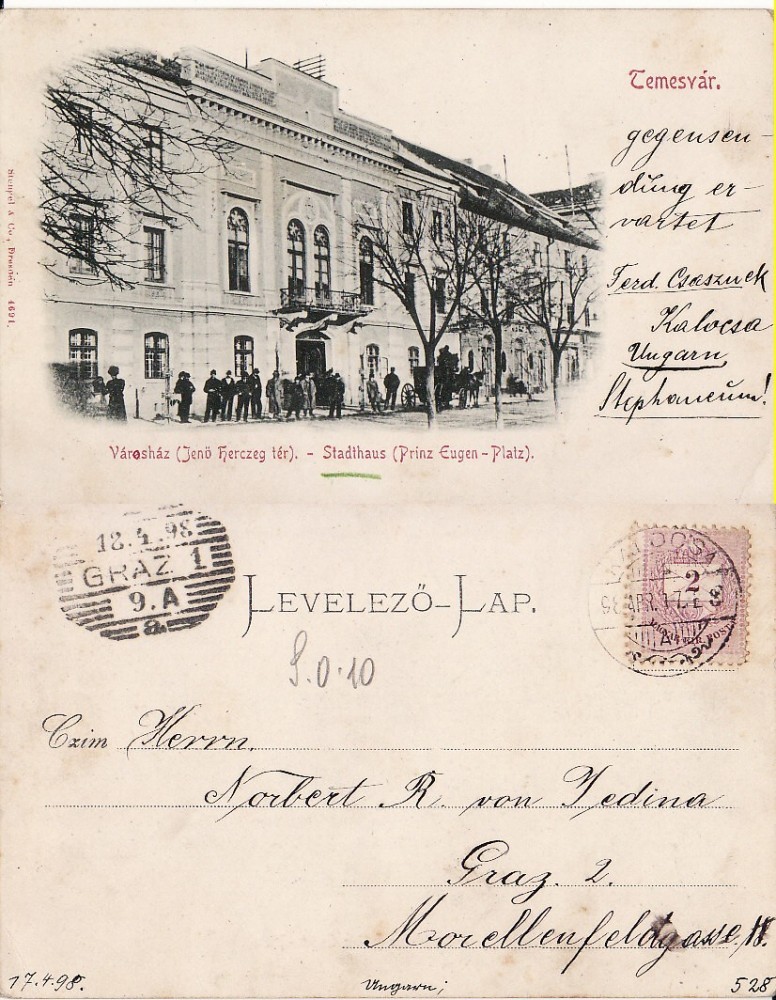 Temesvár.
gegensen-
dung er-
wartet
Ferd. Csaszuek
Kalocsa
Ungarn
Stephaneum!
Stengel & Co., Dresden 4691.
Városház (Jenö Herczeg tér). - Stadthaus (Prinz Eugen-Platz).
18.4.98
GRAZ 1
9.A
a
LEVELEZŐ-LAP.
KALOCSA
98 APR. 17.
2
S.0.10
Czim Herrn,
Norbert R. von Jedina
Graz. 2.
Morellenfeldgasse,
17.4.98.
Ungarn;
528